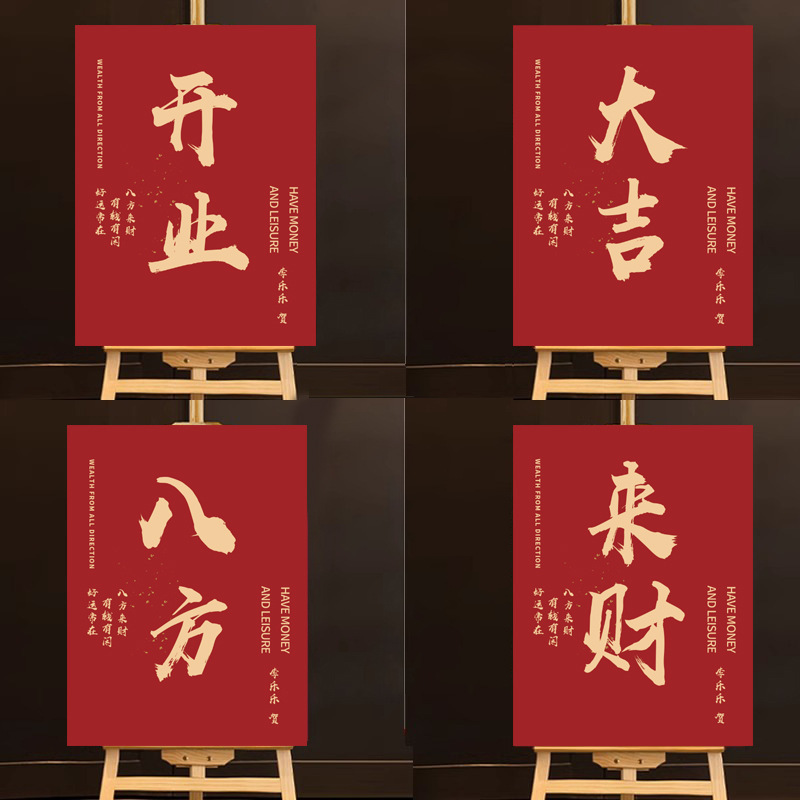 WEALTH FROM ALL DIRECTION
开业
八方来财
有钱有闲
好运常在
HAVE MONEY
AND LEISURE
李乐乐 贺
WEALTH FROM ALL DIRECTION
大吉
八方来财
有钱有闲
好运常在
HAVE MONEY
AND LEISURE
李乐乐 贺
WEALTH FROM ALL DIRECTION
八方
八方来财
有钱有闲
好运常在
HAVE MONEY
AND LEISURE
李乐乐 贺
WEALTH FROM ALL DIRECTION
来财
八方来财
有钱有闲
好运常在
HAVE MONEY
AND LEISURE
李乐乐 贺